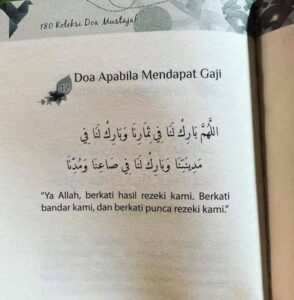 180 Koleksi Doa Mustajab
12
Doa Apabila Mendapat Gaji
اللَّهُمَّ بَارِكْ لَنَا فِي ثِمَارِنَا وَبَارِكْ لَنَا فِي
مَدِينَتِنَا وَبَارِكْ لَنَا فِي صَاعِنَا وَمُدِّنَا
“Ya Allah, berkati hasil rezeki kami. Berkati
bandar kami, dan berkati punca rezeki kami.”